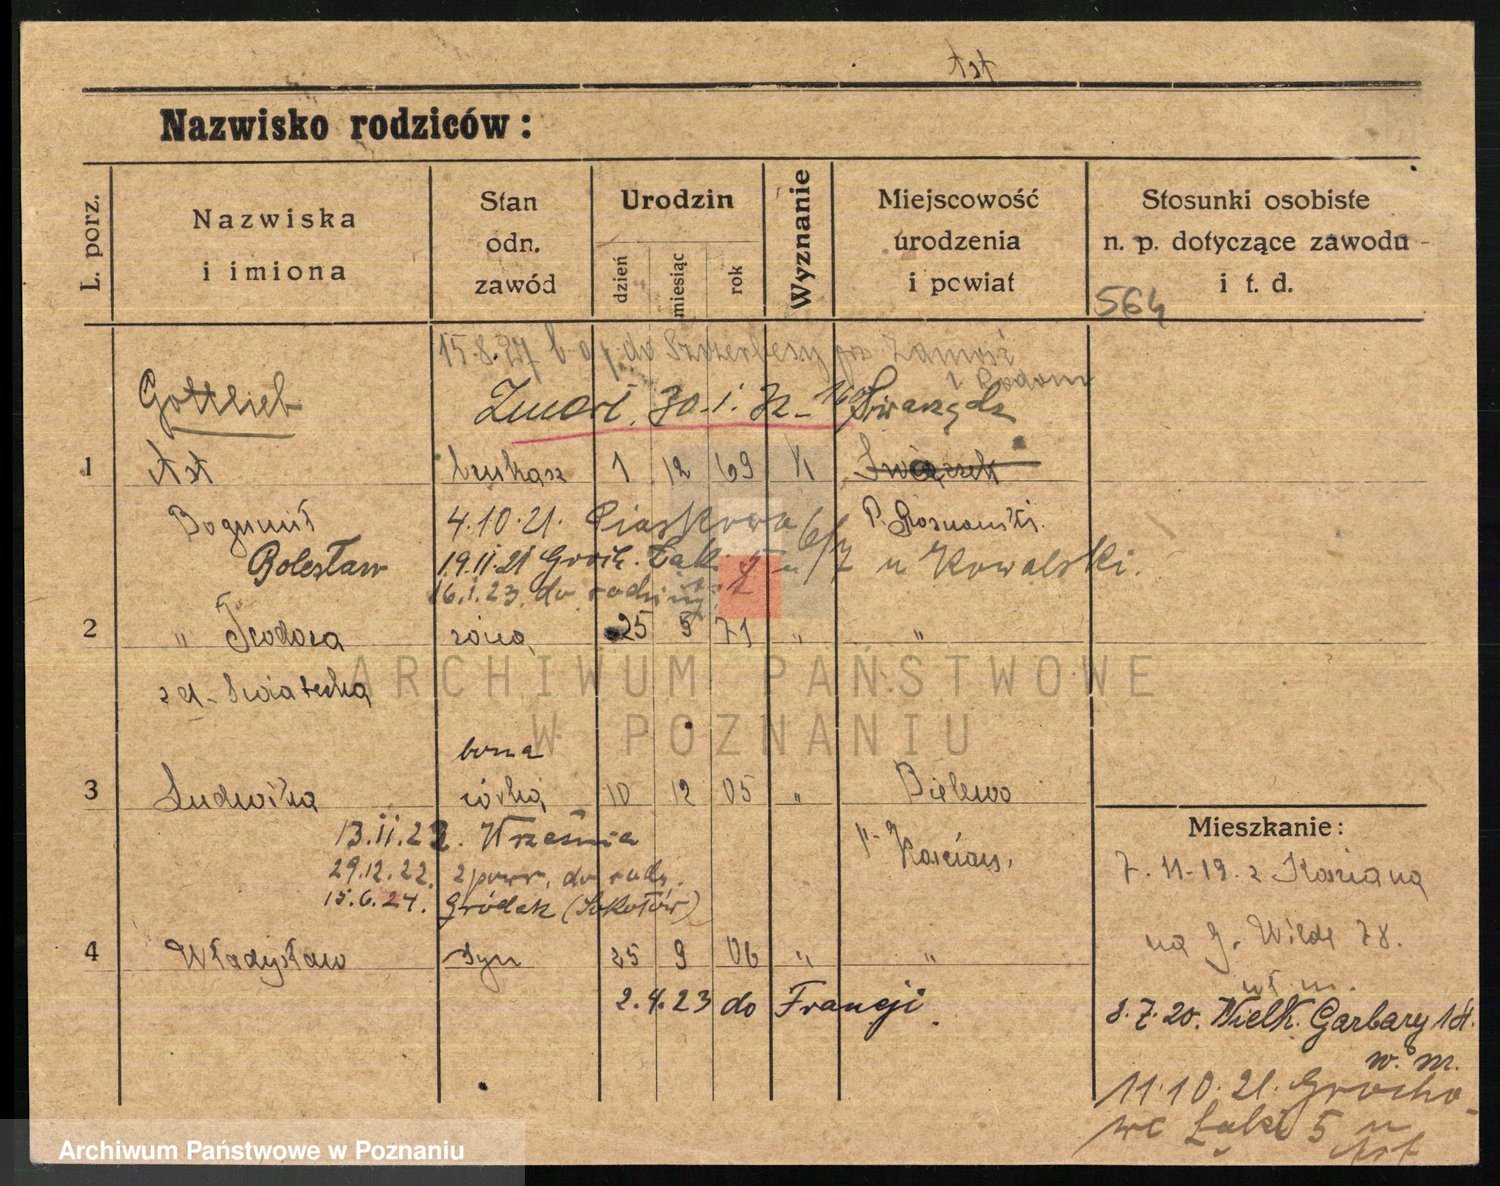 Ast
Nazwisko rodziców:
L. porz.
Nazwiska
i imiona
Stan
odn.
zawód
Urodzin
dzień
miesiąc
rok
Wyznanie
Miejscowość
urodzenia
i powiat
Stosunki osobiste
n. p. dotyczące zawodu
i t. d.
564
15.8.27 do Zamość
Gottlieb
Zmarł 30.1.32
1 Ast 1 12 69
Bogumił 4.10.21. Piaskowa 6/7 P. Poznański.
Bolesław 19.11.21 Groch. Łąk. 5 u Kowalski.
16.1.23. do rodziny
2 " Teodora żona 25 71 " "
bona
3 Ludwika córka 10 12 05 " Bielewo
13.11.22. Września
p. Kościan.
29.12.22. z powr. do rodz.
15.6.24. Gródek (Sokołów)
4 Władysław syn 25 9 06 " "
2.4.23 do Francji.
Mieszkanie:
7.11.19. z Kościana
na G. Wilda 78.
8.7.20. Wielk. Garbary
w. m.
11.10.21. Grocho-
we Łąki 5 u
Ast
ARCHIWUM PAŃSTWOWE
W POZNANIU
Archiwum Państwowe w Poznaniu